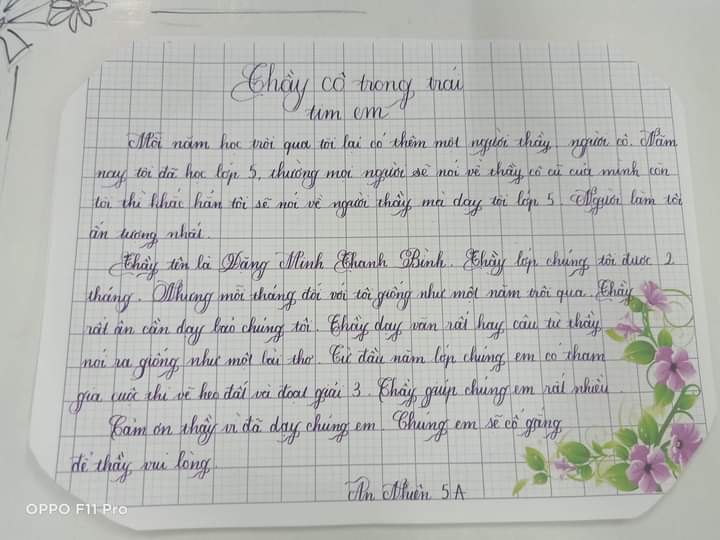 Thầy cô trong trái
tim em
Mỗi năm học trôi qua tôi lại có thêm một người thầy, người cô. Năm
nay tôi đã học lớp 5, thường mọi người sẽ nói về thầy cô cũ của mình còn
tôi thì khác hẳn tôi sẽ nói về người thầy mà dạy tôi lớp 5. Người làm tôi
ấn tượng nhất.
Thầy tên là Đặng Minh Thanh Bình. Thầy lớp chúng tôi được 2
tháng. Nhưng mỗi tháng đối với tôi giống như một năm trôi qua. Thầy
rất ân cần dạy bảo chúng tôi. Thầy dạy văn rất hay câu từ thầy
nói ra giống như một bài thơ. Từ đầu năm lớp chúng em có tham
gia cuộc thi vẽ heo đất và đoạt giải 3. Thầy giúp chúng em rất nhiều
Cảm ơn thầy vì đã dạy chúng em. Chúng em sẽ cố gắng
để thầy vui lòng.
An Nhiên 5A
OPPO F11 Pro